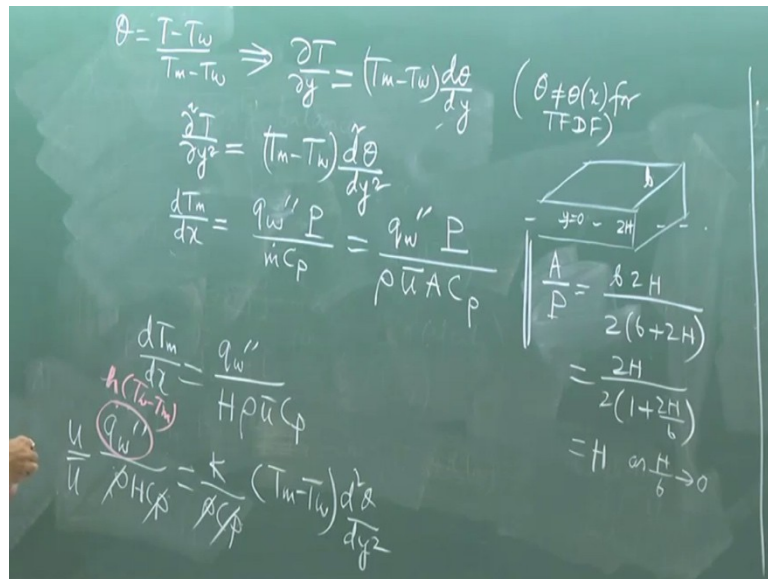 θ = T-Tw / Tm-Tw ⇒ ∂T/∂y = (Tm-Tw) dθ/dy (θ ≠ θ(x) for TFDF)
∂²T/∂y² = (Tm-Tw) d²θ/dy²
dTm/dx = qw'' P / ṁCp = qw'' P / ρ ū A Cp
b
y=0 - 2H - -
A/P = b2H / 2(b+2H)
= 2H / 2(1+2H/b)
= H as H/b → 0
dTm/dx = qw'' / Hρ ū Cp
h(Tw-Tm)
u/ū qw'' / ρHCp = k/ρCp (Tm-Tw) d²θ/dy²